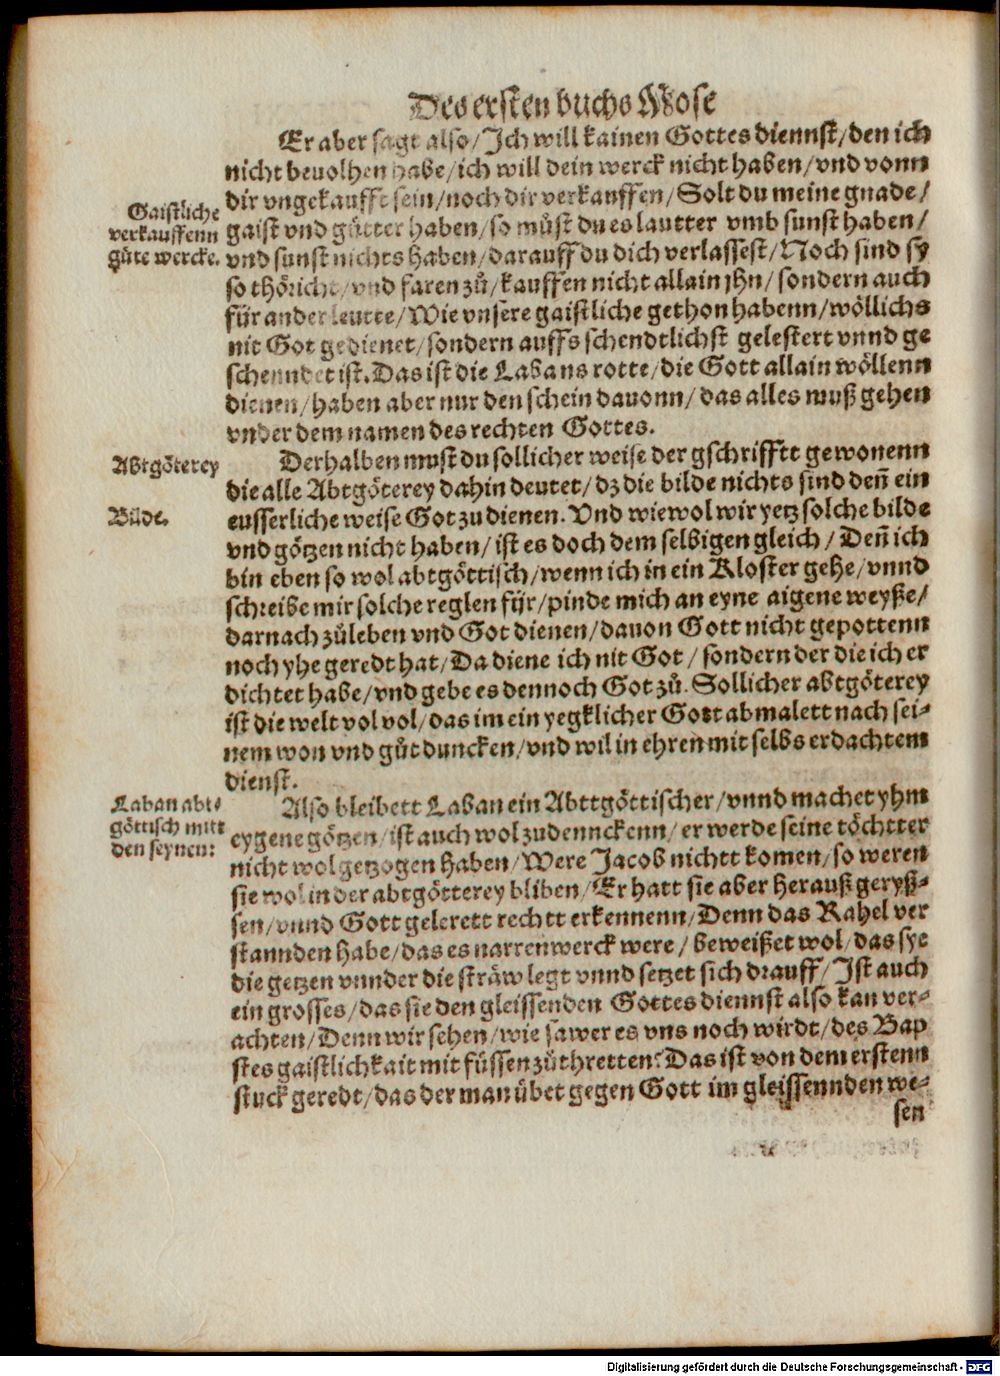 Des ersten buchs Mose
Er aber sagt also/ Ich will kainen Gottes diennst/ den ich
nicht beuolhen habe/ ich will dein werck nicht haben/ vnd vonn
dir vngekaufft sein/ noch dir verkauffen/ Solt du meine gnade/
Gaistliche
verkauffenn
gůte wercke.
gaist vnd gůtter haben/ so můst du es lautter vmb sunst haben/
vnd sunst nichts haben/ darauff du dich verlassest/ Noch sind sy
so thöricht/ vnd faren zů/ kauffen nicht allain jhn/ sondern auch
für ander leutte/ Wie vnsere gaistliche gethon habenn/ wöllichs
nit Got gedienet/ sondern auffs schendtlichst gelestert vnnd ge
schenndet ist. Das ist die Labans rotte/ die Gott allain wöllenn
dienen/ haben aber nur den schein dauonn/ das alles muß gehen
vnder dem namen des rechten Gottes.
Abtgöterey
Derhalben must du sollicher weise der gschrifftt gewonenn
die alle Abtgöterey dahin deutet/ dz die bilde nichts sind deñ ein
Bilde.
eusserliche weise Got zu dienen. Vnd wiewol wir yetz solche bilde
vnd götzen nicht haben/ ist es doch dem selbigen gleich/ Deñ ich
bin eben so wol abtgöttisch/ wenn ich in ein Kloster gehe/ vnnd
schreibe mir solche reglen für/ pinde mich an eyne aigene weyße/
darnach zůleben vnd Got dienen/ dauon Gott nicht gepottenn
noch yhe geredt hat/ Da diene ich nit Got/ sondern der die ich er
dichtet habe/ vnd gebe es dennoch Got zů. Sollicher abtgöterey
ist die welt vol vol/ das im ein yegklicher Gott abmalett nach sei-
nem won vnd gůt duncken/ vnd wil in ehren mit selbs erdachtem
dienst.
Laban abt-
göttisch mitt
den seynen:
Also bleibett Laban ein Abttgöttischer/ vnnd machet yhm
eygene götzen/ ist auch wol zudennckenn/ er werde seine töchtter
nicht wol getzogen haben/ Were Jacob nichtt komen/ so weren
sie wol in der abtgötterey bliben/ Er hatt sie aber herauß geryß-
sen/ vnnd Gott gelerett rechtt erkennenn/ Denn das Rahel ver
stannden habe/ das es narrenwerck were/ beweißet wol/ das sye
die getzen vnnder die sträw legt vnnd setzet sich drauff/ Ist auch
ein grosses/ das sie den gleissenden Gottes diennst also kan ver-
achten/ Denn wir sehen/ wie sawer es vns noch wirdt/ des Bap
stes gaistlichkait mit füssen zůthretten: Das ist von dem erstenn
stuck geredt/ das der man übet gegen Gott im gleissennden we-
sen
Digitalisierung gefördert durch die Deutsche Forschungsgemeinschaft - DFG